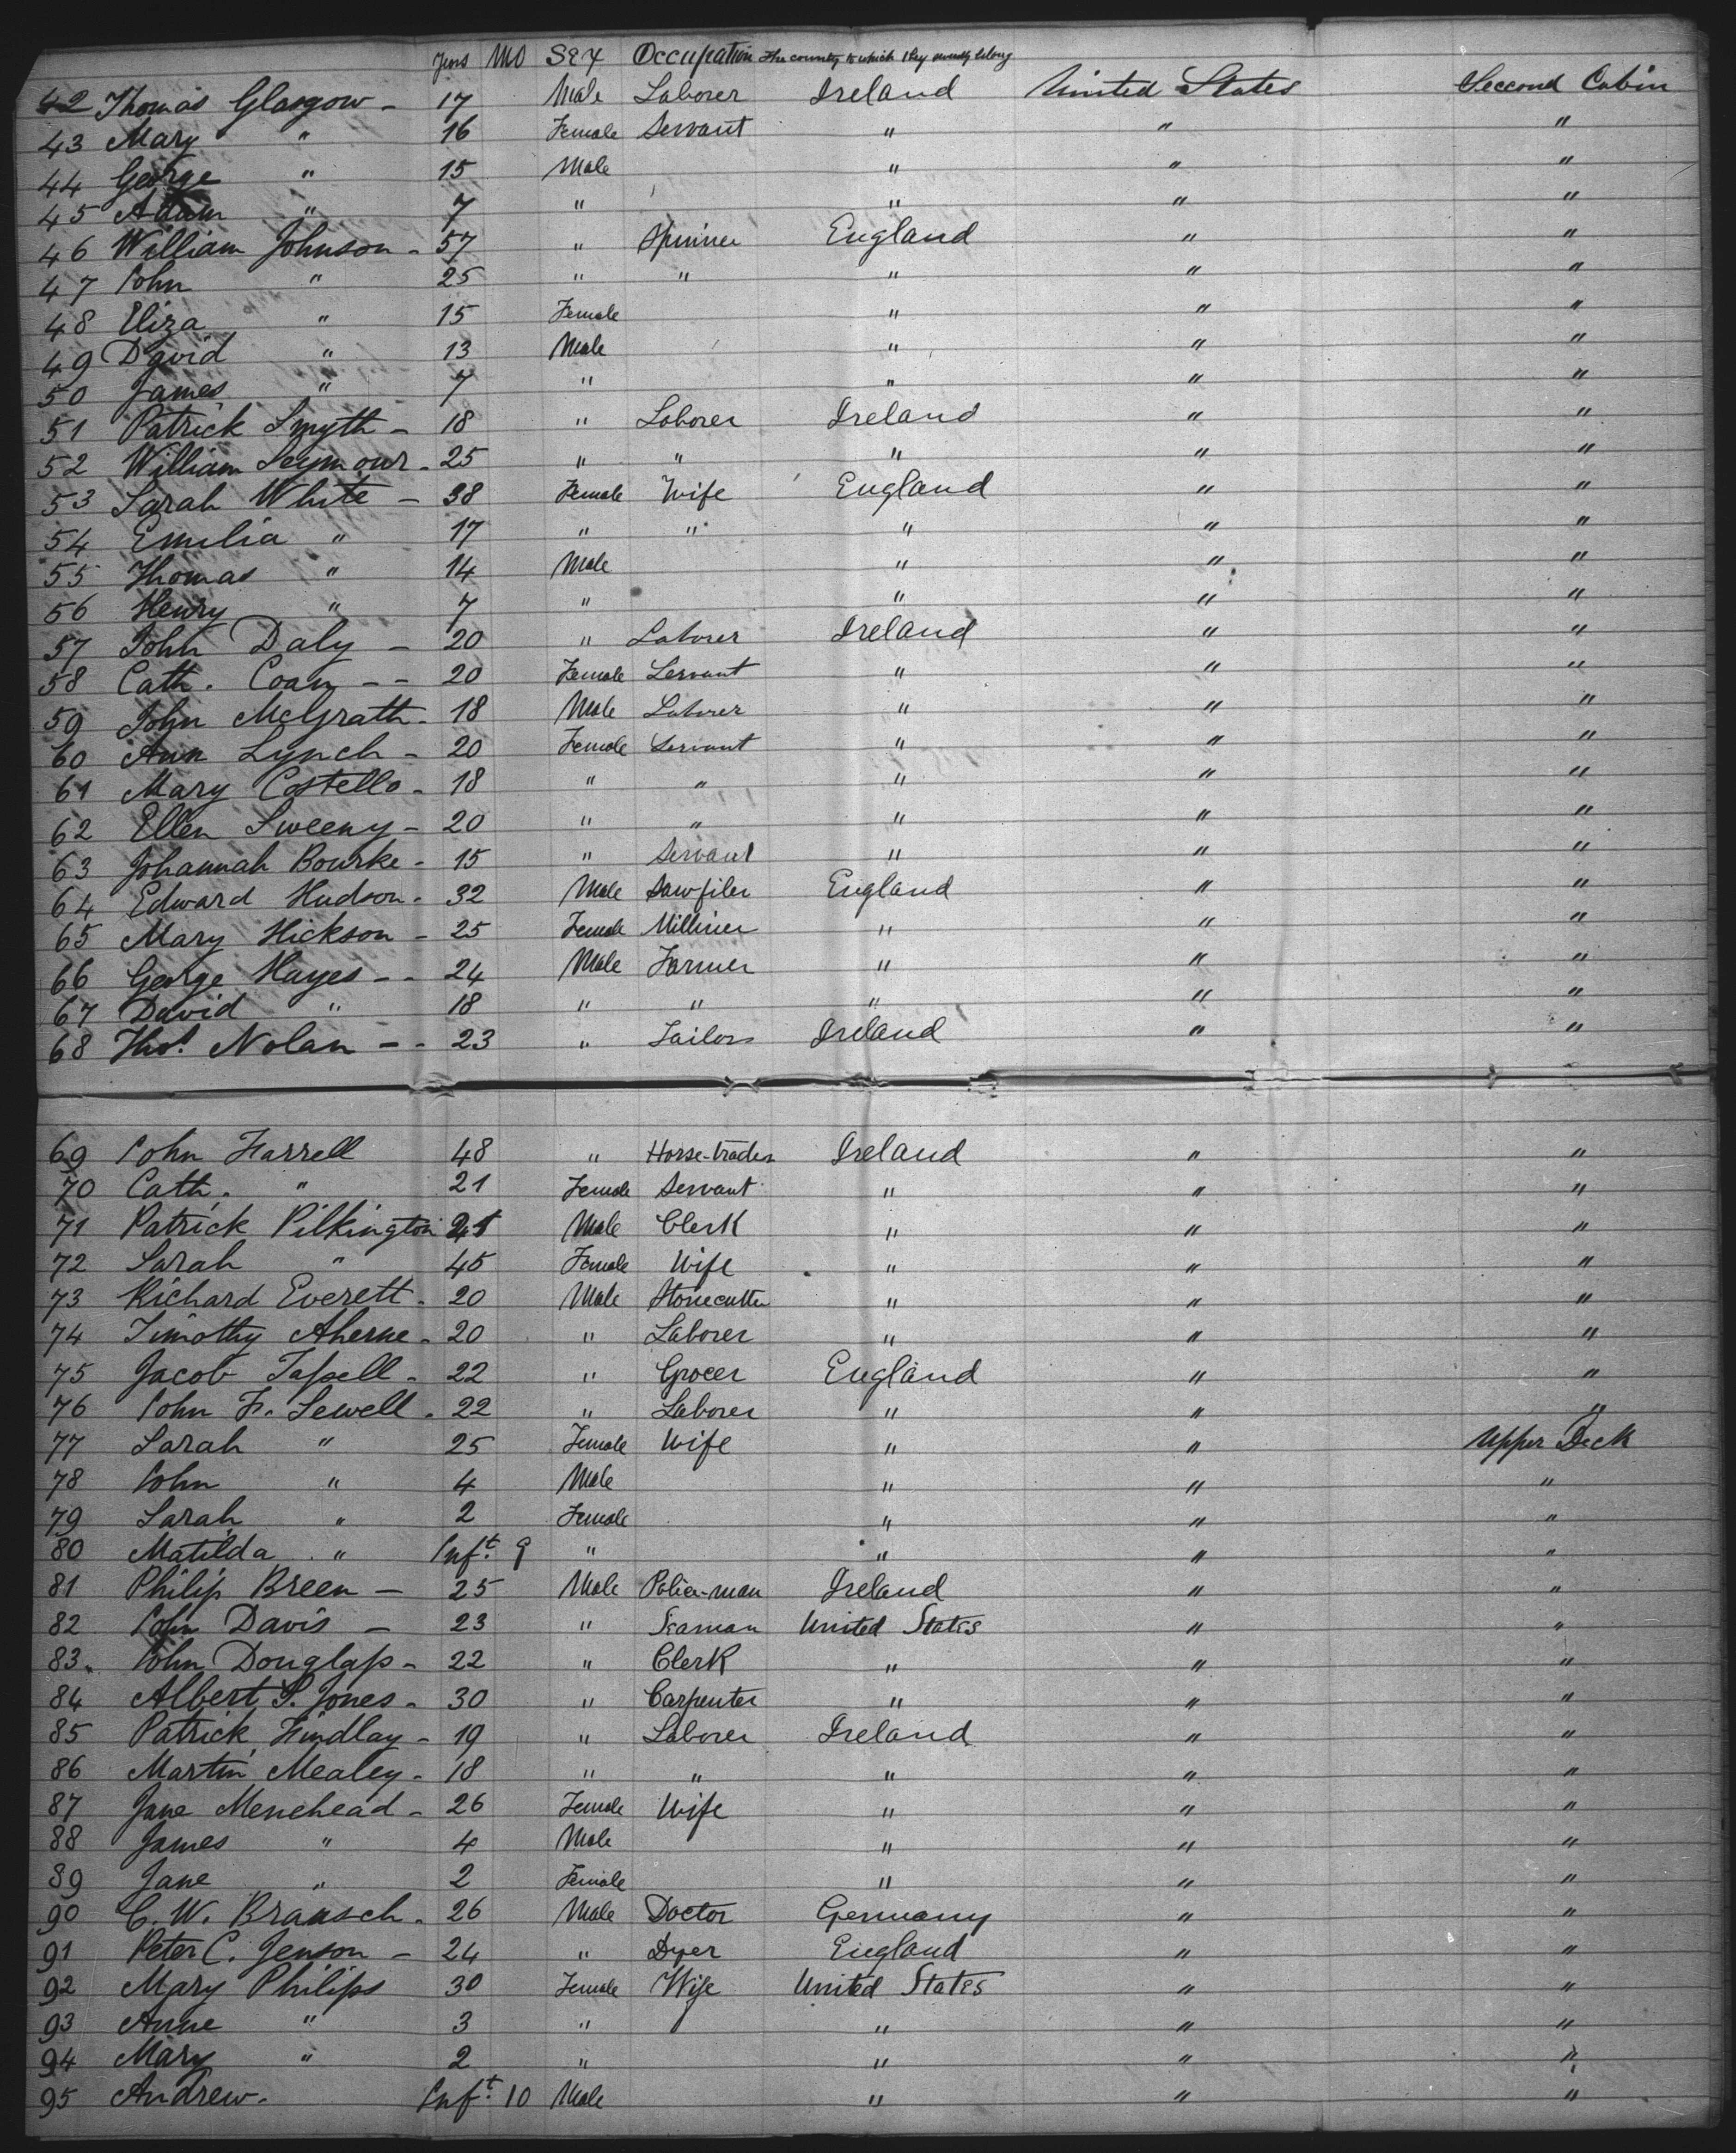 Years Mo Sex Occupation The country to which they severally belong
42 Thomas Glasgow - 17 Male Laborer Ireland United States Seccond Cabin
43 Mary " 16 Female Servant " " "
44 George " 15 Male " " "
45 Adam " 7 " " " "
46 William Johnson - 57 " Spinner England " "
47 John " 25 " " " " "
48 Eliza " 15 Female " " "
49 David " 13 Male " " "
50 James " 7 " " " "
51 Patrick Smyth - 18 " Laborer Ireland " "
52 William Seymour - 25 " " " " "
53 Sarah White - 38 Female Wife England " "
54 Emilia " 17 " " " " "
55 Thomas " 14 Male " " "
56 Henry " 7 " " " "
57 John Daly - 20 " Laborer Ireland " "
58 Cath. Coan - - 20 Female Servant " " "
59 John McGrath - 18 Male Laborer " " "
60 Ann Lynch - 20 Female Servant " " "
61 Mary Costello - 18 " " " " "
62 Ellen Sweeny - 20 " " " " "
63 Johannah Bourke - 15 " Servant " " "
64 Edward Hudson - 32 Male Sawfiler England " "
65 Mary Hickson - 25 Female Milliner " " "
66 George Hayes - - 24 Male Farmer " " "
67 David " 18 " " " " "
68 Thos. Nolan - - 23 " Tailor Ireland " "
69 John Farrell 48 " Horse-trader Ireland " "
70 Cath. " 21 Female Servant " " "
71 Patrick Pilkington Male Clerk " " "
72 Sarah " 45 Female Wife " " "
73 Richard Everett - 20 Male Stonecutter " " "
74 Timothy Aherne - 20 " Laborer " " "
75 Jacob Tassell - 22 " Grocer England " "
76 John F. Sewell - 22 " Laborer " " "
77 Sarah " 25 Female Wife " " Upper Deck
78 John " 4 Male " " "
79 Sarah " 2 Female " " "
80 Matilda " Inft. 9 " " " "
81 Philip Breen - 25 Male Police-man Ireland " "
82 John Davis - 23 " Seaman United States " "
83 John Douglass - 22 " Clerk " " "
84 Albert S. Jones - 30 " Carpenter " " "
85 Patrick Findlay - 19 " Laborer Ireland " "
86 Martin Mealey - 18 " " " " "
87 Jane Menehead - 26 Female Wife " " "
88 James " 4 Male " " "
89 Jane " 2 Female " " "
90 C. W. Brausch - 26 Male Doctor Germany " "
91 Peter C. Jenson - 24 " Dyer England " "
92 Mary Philips 30 Female Wife United States " "
93 Anne " 3 " " " "
94 Mary " 2 " " " "
95 Andrew - Inft. 10 Male " " "